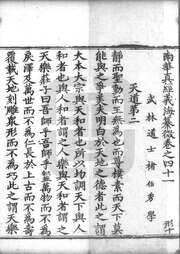 南華真經義海纂微卷之四十一 形十
武林道士褚伯秀學
天道第二
靜而聖動而王無為也而尊樸素而天下莫
能與之爭美夫明白於天地之德者此之謂
大本大宗與天和者也所以均調天下與人
和者也與人和者謂之人樂與天和者謂之
天樂莊子曰吾師乎吾師乎䪠萬物而不為
戾澤及萬世而不為仁長於上古而不為壽
覆載天地刻雕衆形而不為巧此之謂天樂